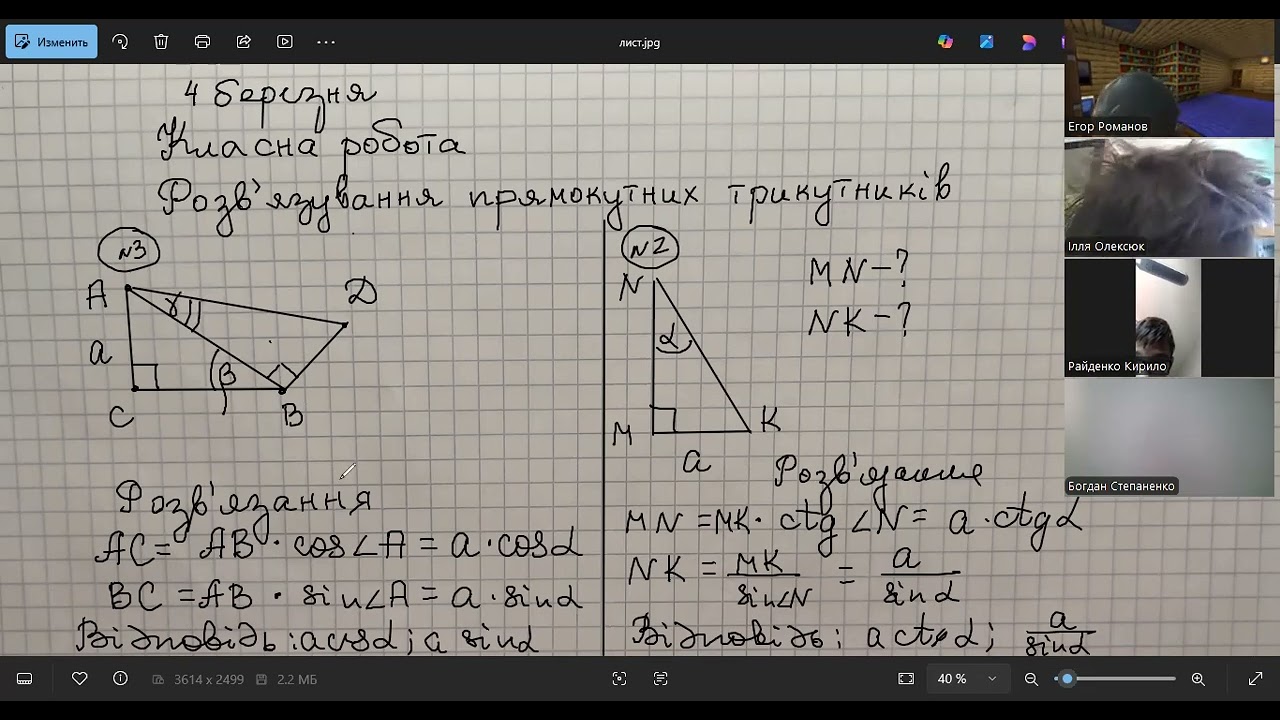 Изменить
лист.jpg
4 березня
Класна робота
Розв'язування прямокутних трикутників
№3
A
D
γ
a
β
C
B
Розв'язання
AC = AB · cos∠A = a·cosα
BC = AB · sin∠A = a·sinα
Відповідь: a cosα; a sinα
№2
N
MN - ?
NK - ?
α
M
K
a
Розв'язання
MN = MK · ctg ∠N = a·ctgα
NK = MK / sin∠N = a / sinα
Відповідь: a ctg α; a / sinα
Егор Романов
Ілля Олексюк
Райденко Кирило
Богдан Степаненко
3614 x 2499
2.2 МБ
40 %